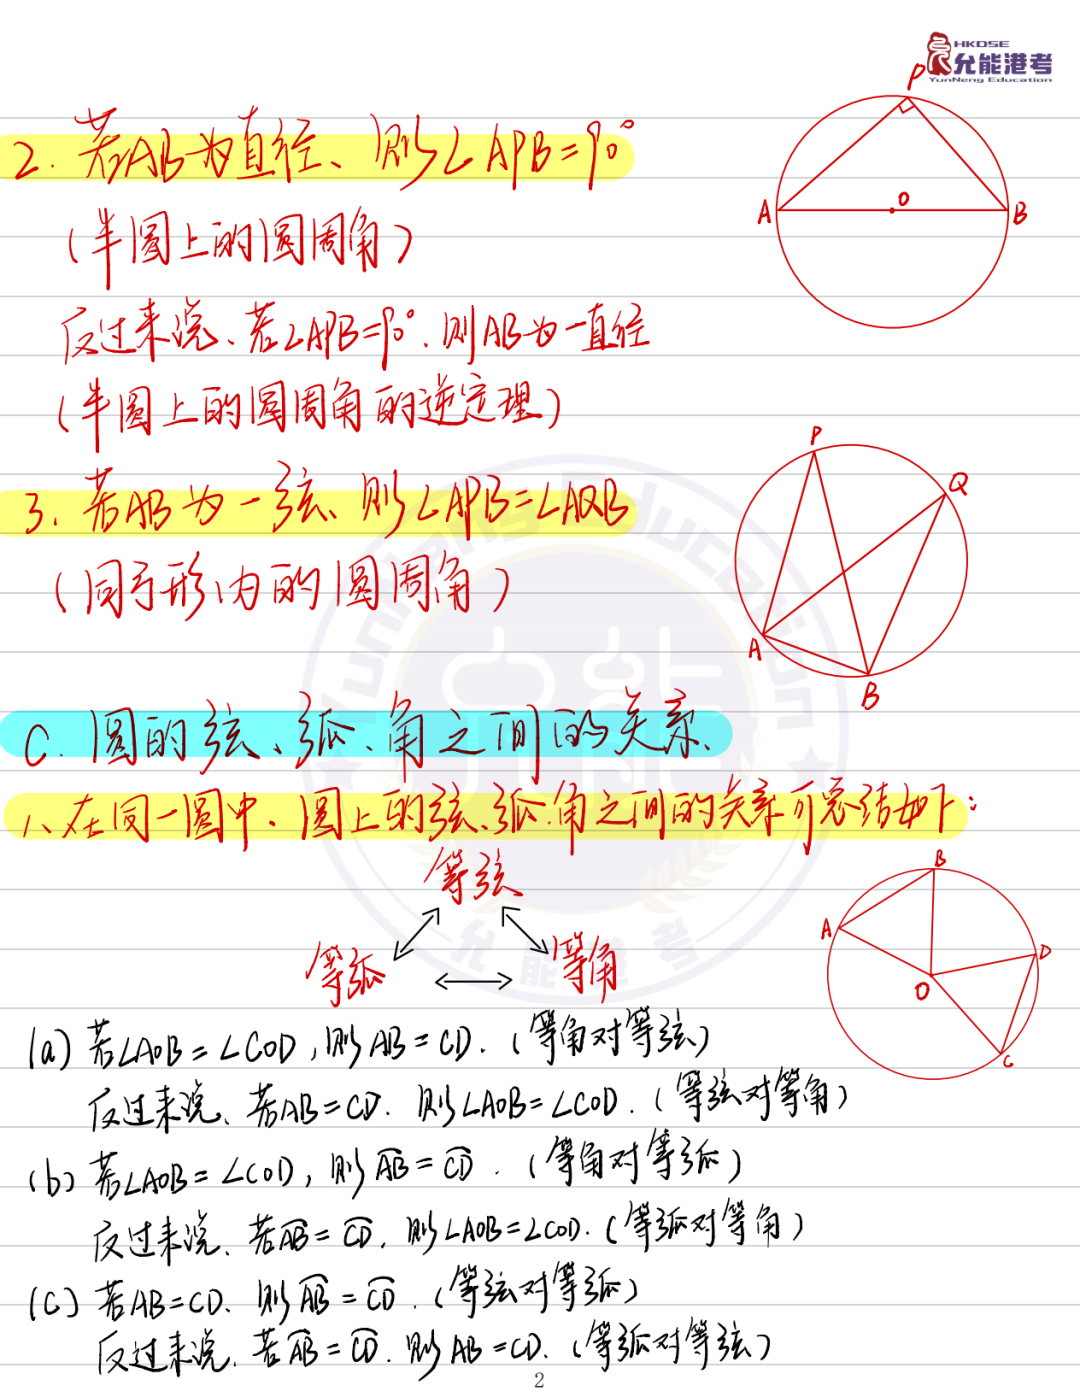 HKDSE
允能港考
YunNeng Education
2. 若AB为直径、则∠APB=90°
(半圆上的圆周角)
反过来说、若∠APB=90°.则AB为一直径
(半圆上的圆周角的逆定理)
P
A
O
B
3. 若AB为一弦、则∠APB=∠AQB
(同弓形内的圆周角)
P
Q
A
B
C. 圆的弦、弧、角之间的关系、
1、在同一圆中、圆上的弦、弧、角之间的关系可总结如下:
等弦
等弧
等角
B
A
D
O
C
(a) 若∠AOB=∠COD,则AB=CD.(等角对等弦)
反过来说、若AB=CD.则∠AOB=∠COD.(等弦对等角)
(b) 若∠AOB=∠COD,则A͡B=C͡D.(等角对等弧)
反过来说、若A͡B=C͡D,则∠AOB=∠COD.(等弧对等角)
(C) 若AB=CD、则A͡B=C͡D.(等弦对等弧)
反过来说、若A͡B=C͡D.则AB=CD.(等弧对等弦)
2
YunNeng Education
允能港考